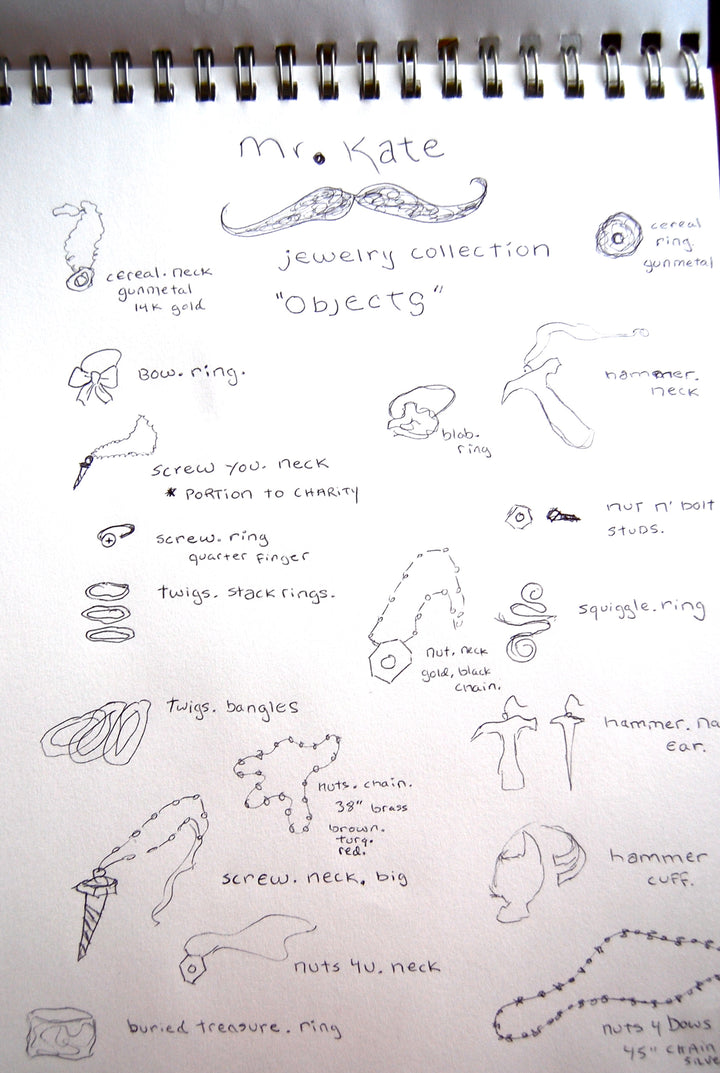 mr. Kate
jewelry collection
"OBJECTS"
cereal. neck
gunmetal
14K gold
cereal
ring.
gunmetal
Bow. ring.
hammer.
neck
blob.
ring
screw you. neck
* PORTION TO CHARITY
nut n' bolt
studs.
screw. ring
quarter finger
twigs. stack rings.
squiggle. ring
nut. neck
gold, black
chain.
twigs. bangles
hammer. na
ear.
nuts. chain.
38" brass
brown.
turq.
red.
screw. neck. big
hammer
cuff.
nuts 4u. neck
buried treasure. ring
nuts 4 Bows
45" CHAIN
SILVE